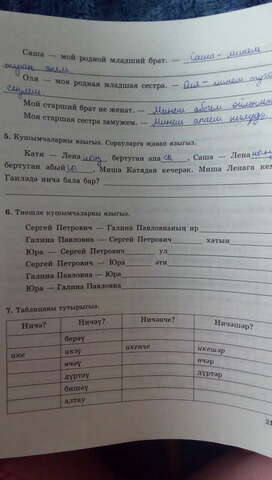 Саша — мой родной младший брат. — Саша - минем
туган энем
Оля — моя родная младшая сестра. — Оля - минем
сеңлем
Мой старший брат не женат. — Минем абыем
Моя старшая сестра замужем. — Минем апаем
5. Кушымчаларны языгыз. Сорауларга җавап языгыз.
Катя — Лена ның бертуган апа сы, Саша — Лена ның
бертуган абый сы. Миша Катядан кечерәк. Миша Ленага
Гаиләдә ничә бала бар?
6. Тиешле кушымчаларны языгыз.
Сергей Петрович — Галина Павловнаның ир
Галина Павловна — Сергей Петрович хатын
Юра — Сергей Петрович ул
Сергей Петрович — Юра әти
Галина Павловна — Юра
Юра — Галина Павловна
7. Таблицаны тутырыгыз.
Ничә? Ничәү? Ничәнче? Ничәшәр?
берәү
ике икәү икенче икешәр
өчәү өчәр
дүртәү дүртәр
бишәү
алтау